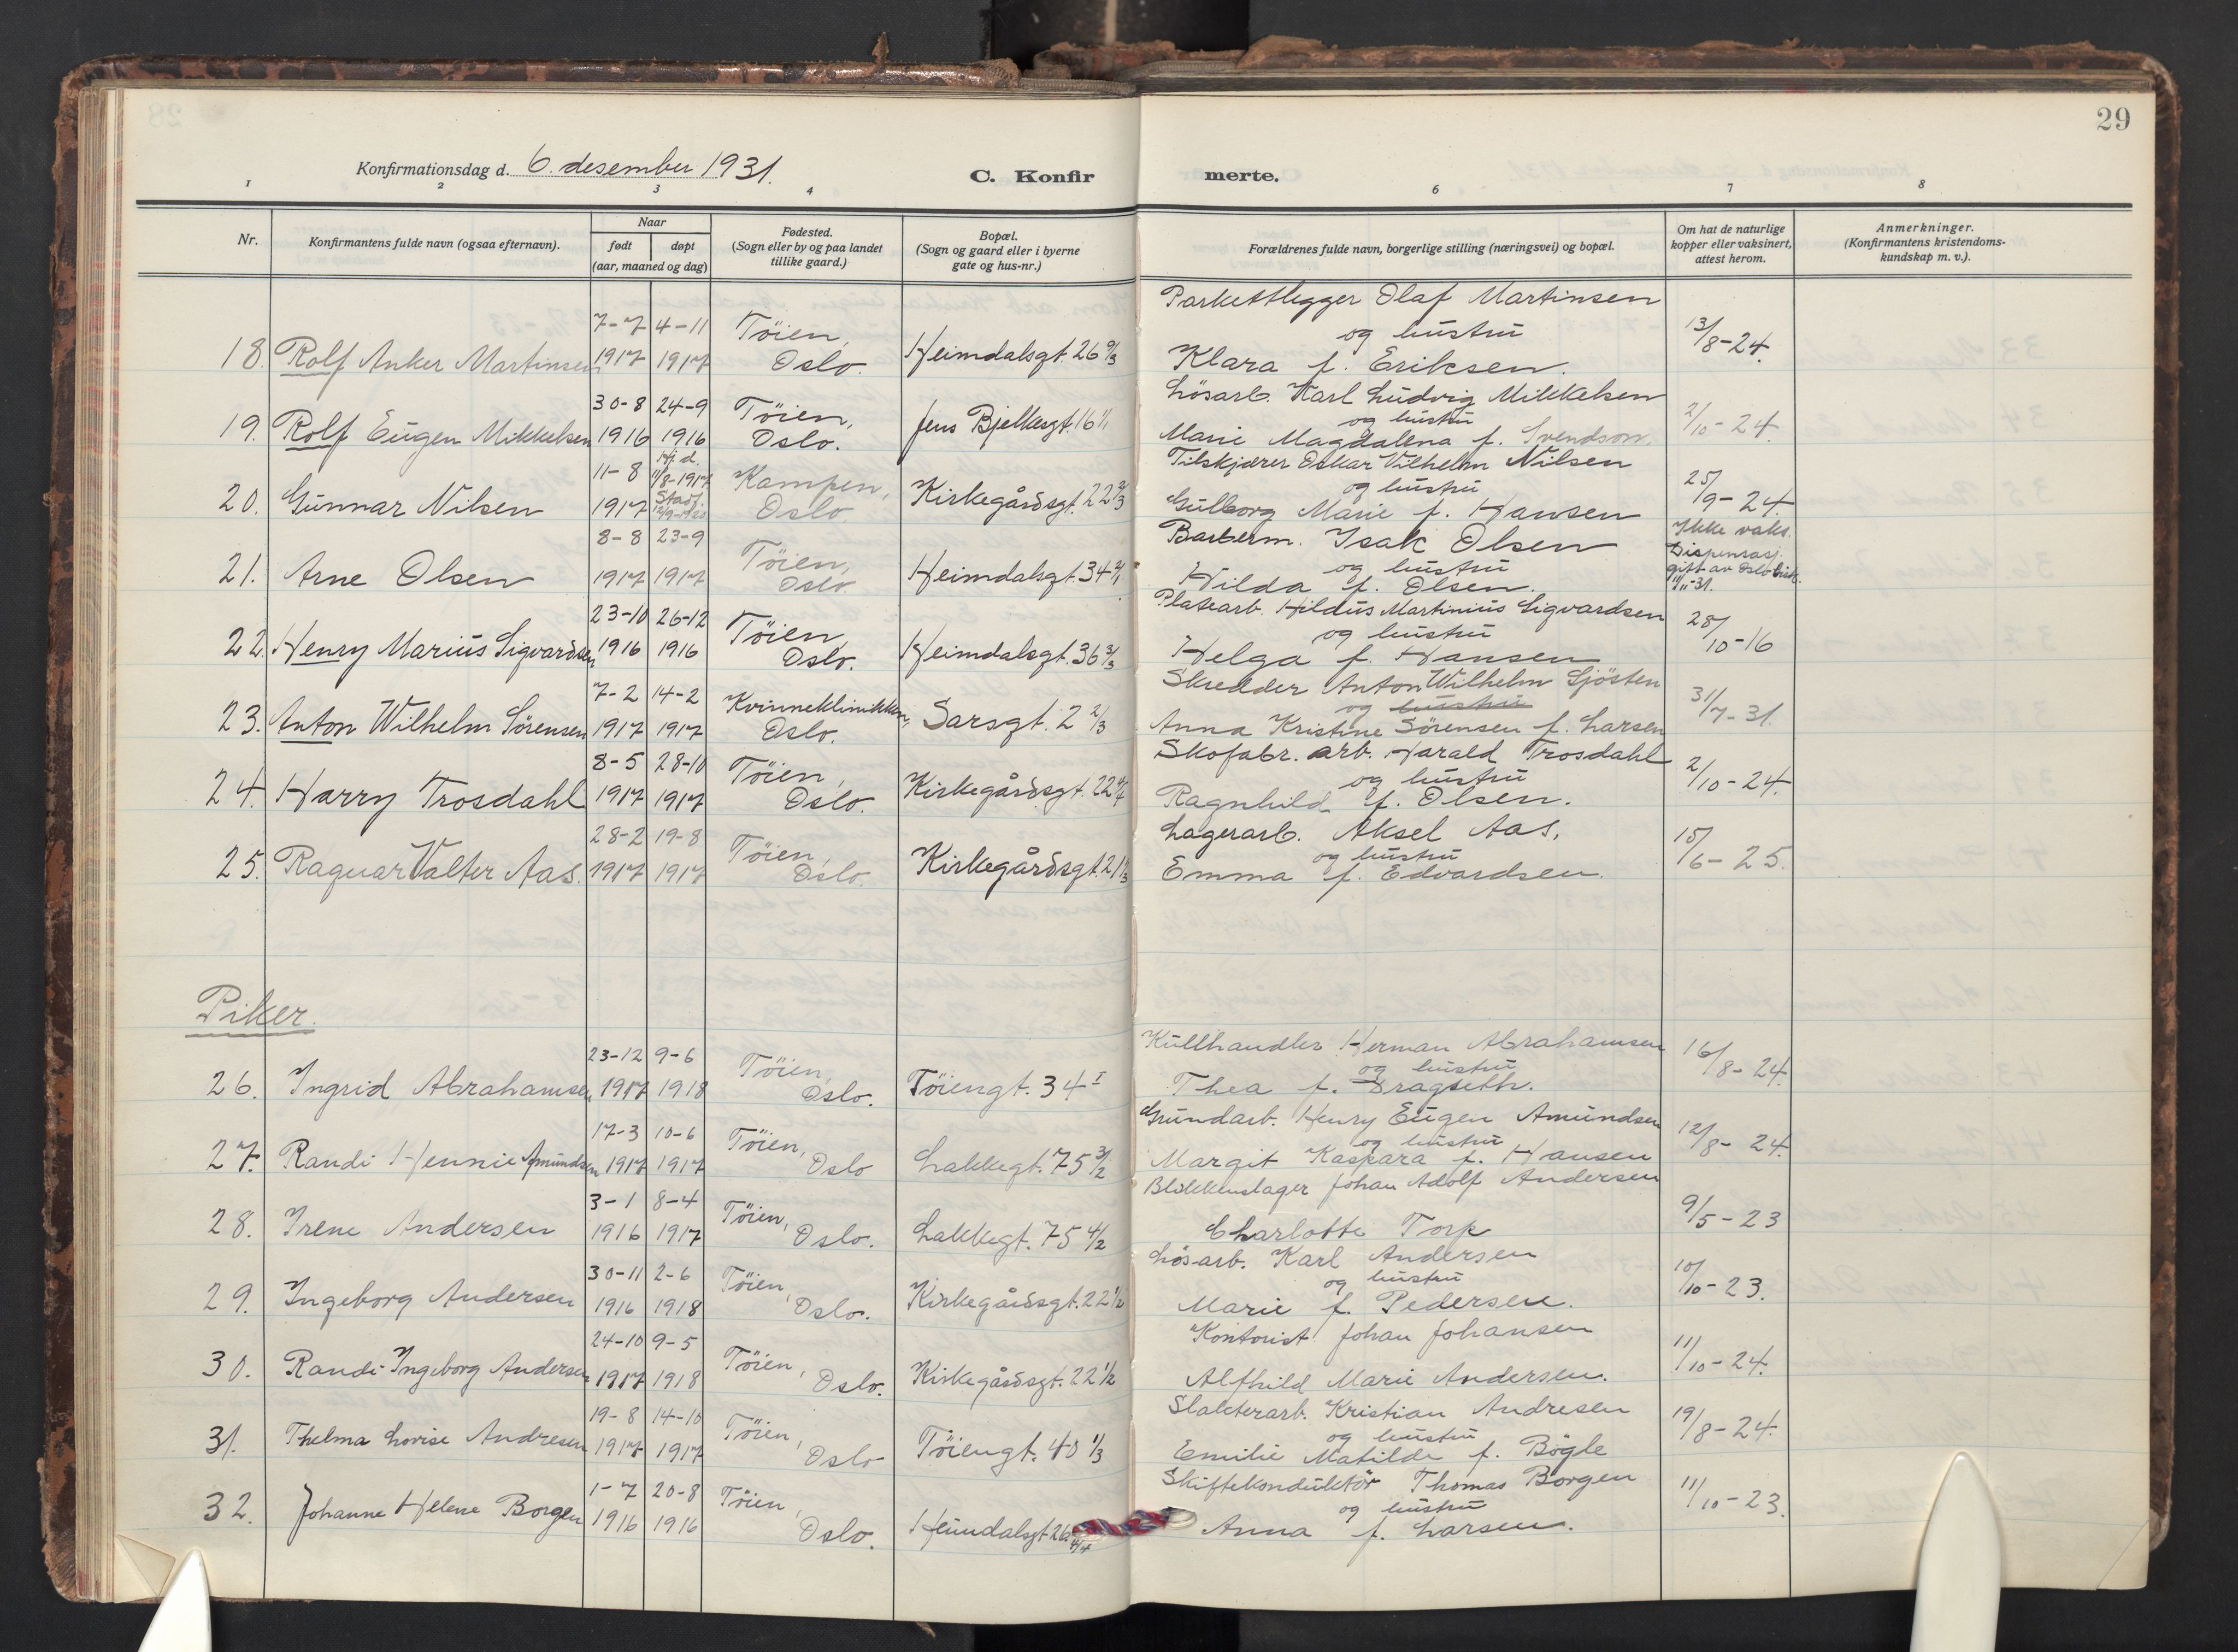 29
Konfirmationsdag d. 6. desember 1931.
C. Konfirmerte.
1 2 3 4 6 7 8
Nr.
Konfirmantens fulde navn (ogsaa efternavn).
Naar
født døpt
(aar, maaned og dag)
Fødested.
(Sogn eller by og paa landet
tillike gaard.)
Bopæl.
(Sogn og gaard eller i byerne
gate og hus-nr.)
Forældrenes fulde navn, borgerlige stilling (næringsvei) og bopæl.
Om hat de naturlige
kopper eller vaksinert,
attest herom.
Anmerkninger.
(Konfirmantens kristendoms-
kundskap m. v.).
Parkettlegger Olaf Martinsen
7-7 4-11 Töien, og hustru 13/8-24.
18. Rolf Anker Martinsen 1917 1917 Oslo. Heimdalsgt. 26 Klara f. Eriksen.
30-8 24-9 Töien, Lösarb. Karl Ludvig Mikkelsen
og hustru 2/10-24.
19. Rolf Eugen Mikkelsen 1916 1916 Oslo. Jens Bjelkesgt. 16 Marie Magdalena f. Svendson.
11-8 11/8-1917 Kampen, Tilskjærer Oskar Vilhelm Nilsen
og hustru 25/9-24.
20. Gunnar Nilsen 1917 Stadf. Oslo. Kirkegårdsgt. 22 2/3 Gulborg Marie f. Hansen
8-8 23-9 Töien, Barberm. Isak Olsen Ikke vaks.
og hustru Dispensasj.
21. Arne Olsen 1917 1917 Oslo. Heimdalsgt. 34 Hilda f. Olsen. gitt av Oslo bisk.
23-10 26-12 Töien, Platearb. Hildus Martinius Sigvardsen
og hustru 28/10-16
22. Henry Marius Sigvardsen 1916 1916 Oslo. Heimdalsgt. 36 3/3 Helga f. Hansen
7-2 14-2 Kvinneklinikken, Skredder Anton Wilhelm Sjösten
og hustru 31/7-31.
23. Anton Wilhelm Sörensen 1917 1917 Oslo. Sarsgt. 2 2/3 Anna Kristine Sörensen f. Larsen
8-5 28-10 Töien, Skofabr. arb. Harald Trosdahl
og hustru 2/10-24.
24. Harry Trosdahl 1917 1917 Oslo. Kirkegårdsgt. 22 Ragnhild f. Olsen.
28-2 19-8 Töien, Lagerarb. Aksel Aas,
og hustru 15/6-25.
25. Ragnar Valter Aas. 1917 1917 Oslo. Kirkegårdsgt. 21 Emma f. Edvardsen.
Piker.
23-12 9-6 Töien, Kullhandler Herman Abrahamsen
og hustru 16/8-24.
26. Ingrid Abrahamsen 1917 1918 Oslo. Töiengt. 34 I Thea f. Dragseth.
17-3 10-6 Töien, Grundarb. Henry Eugen Amundsen
og hustru 12/8-24.
27. Randi Hennie Amundsen 1917 1917 Oslo Lakkegt. 75 3/2 Margit Kaspara f. Hansen
3-1 8-4 Töien, Blikkenslager Johan Adolf Andersen
28. Irene Andersen 1916 1917 Oslo. Lakkegt. 75 4/2 Charlotte Torp 9/5-23
30-11 2-6 Töien, Lös-arb. Karl Andersen
og hustru 10/10-23.
29. Ingeborg Andersen 1916 1918 Oslo. Kirkegårdsgt. 22 1/2 Marie f. Pedersen.
24-10 9-5 Töien, Kontorist Johan Johansen
30. Randi Ingeborg Andersen 1917 1918 Oslo. Kirkegårdsgt. 22 1/2 Alfhild Marie Andersen. 11/10-24.
19-8 14-10 Töien, Slakterarb. Kristian Andresen
og hustru 19/8-24.
31. Thelma Lovise Andresen 1917 1917 Oslo Töiengt. 40 1/3 Emilie Matilde f. Bögle
1-7 20-8 Töien, Skiftekonduktör Thomas Borgen
og hustru 11/10-23.
32. Johanne Helene Borgen 1916 1916 Oslo. Heimdalsgt 26 4/4 Anna f. Larsen.